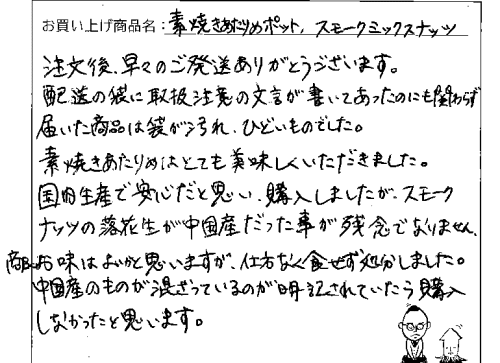 お買い上げ商品名：素焼きあたりめポット、スモークミックスナッツ
注文後、早々のご発送ありがとうございます。
配送の袋に取扱注意の文言が書いてあったのにも関わらず
届いた商品は袋が汚れ、ひどいものでした。
素焼きあたりめはとても美味しくいただきました。
国内生産で安心だと思い、購入しましたが、スモーク
ナッツの落花生が中国産だった事が残念でなりません。
お味はよいかと思いますが、仕方なく食せず処分しました。
中国産のものが混ざっているのが明記されていたら購入
しなかったと思います。